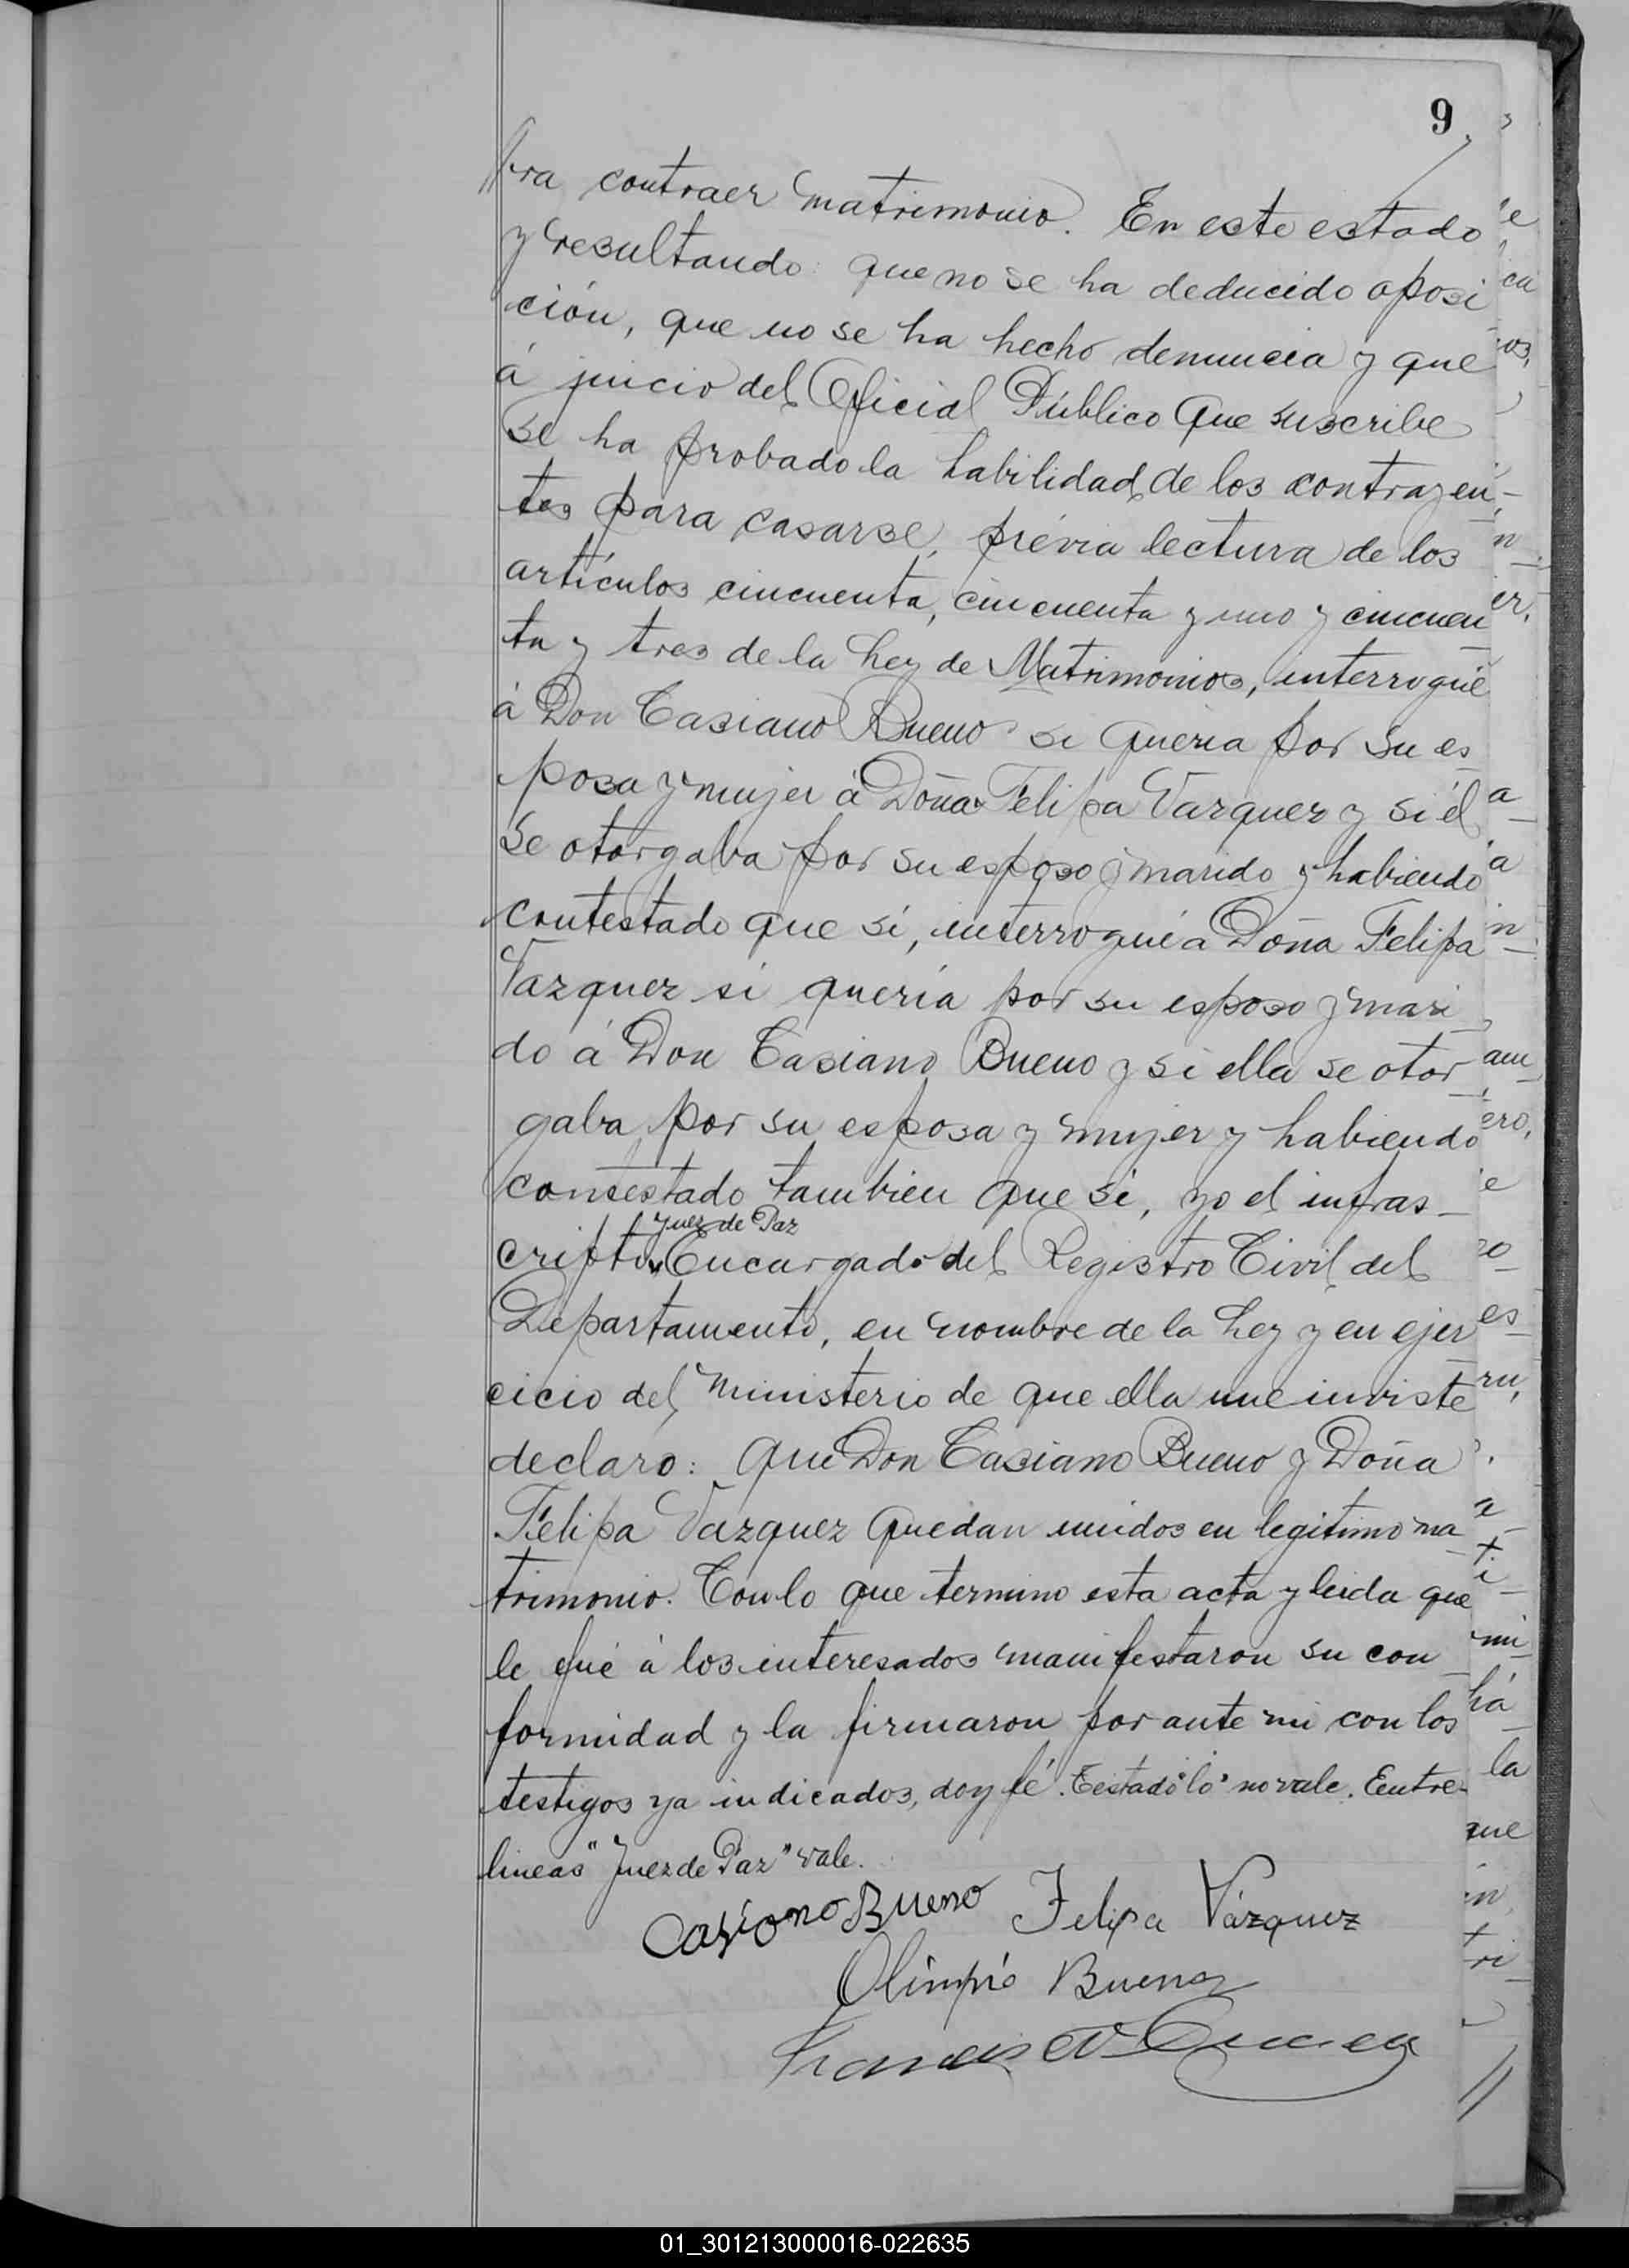 9
//ra contraer matrimonio. En este estado
y resultando: que no se ha deducido oposi
ción, que no se ha hecho denuncia y que
á juicio del Oficial Público que suscribe
se ha probado la habilidad de los contrayen-
tes para casarse, prévia lectura de los
artículos cincuenta, cincuenta y uno y cincuen
ta y tres de la Ley de Matrimonios, interrogué
á Don Casiano Bueno si queria por su es
posa y mujer á Doña Felipa Vazquez y si él
se otorgaba por su esposo y marido y habiendo
contestado que si, interrogué á Doña Felipa
Vazquez si quería por su esposo y mari
do á Don Casiano Bueno y si ella se otor
gaba por su esposa y mujer y habiendo
contestado tambien que si, yo el infras-
Juez de Paz
cripto Encargado del Registro Civil del
Departamento, en nombre de la Ley y en ejer
cicio del ministerio de que ella me inviste
declaro: que Don Casiano Bueno y Doña
Felipa Vazquez quedan unidos en legitimo ma
trimonio. Con lo que termino esta acta y leida que
le fué á los interesados manifestaron su con
formidad y la firmaron por ante mi con los
testigos ya indicados, doy fé. Testado "lo" no vale. Eentre-
lineas "Juez de Paz" vale.
Casiano Bueno Felipa Vázquez
Olimpio Bueno
01_301213000016-022635